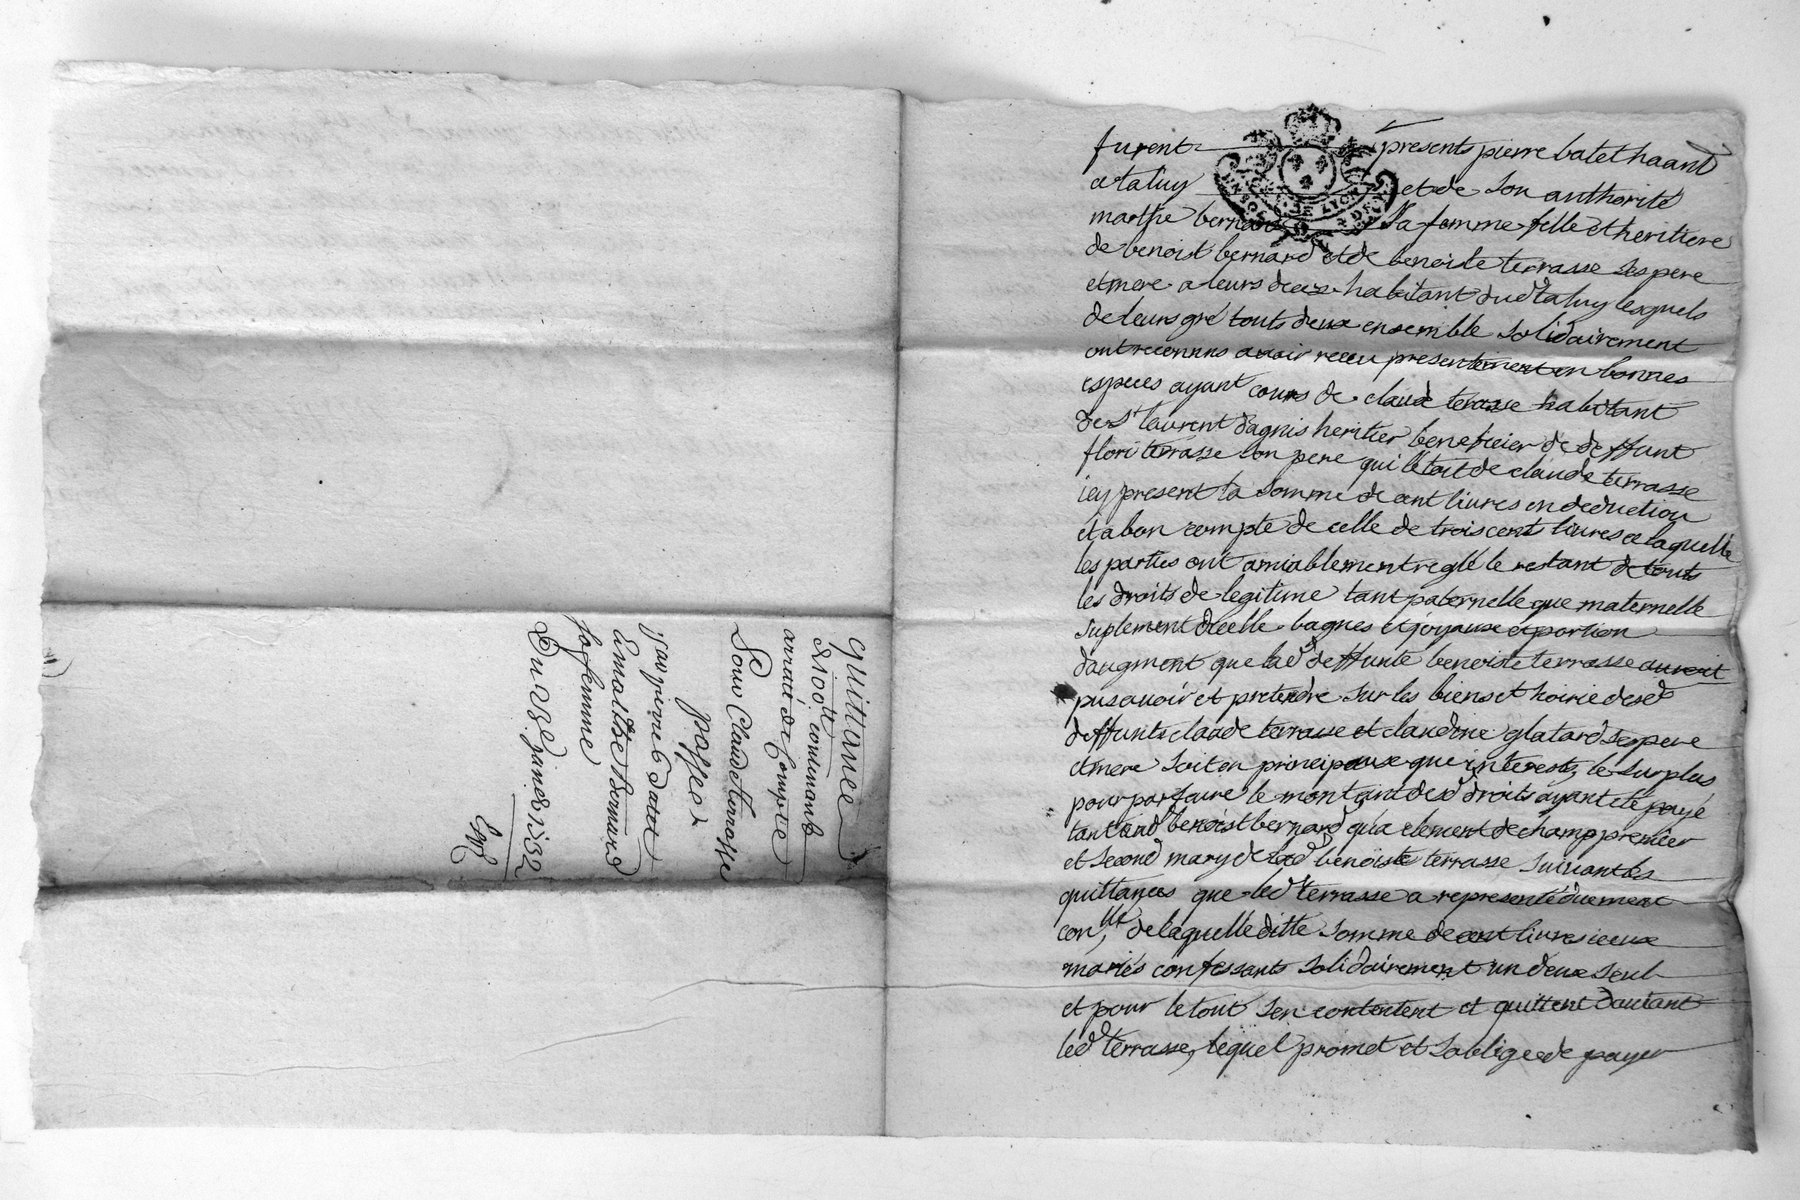 furent presents pierre batet haant
a taluy et de son authorité
marthe bernard sa femme fille et heritiere
de benoist bernard et de benoiste terrasse ses pere
et mere a leurs deces habitant dud taluy lesquels
de leurs gré touts deux ensemble solidairement
ont reconnus avoir receu presentement en bonnes
especes ayant cours de claude terasse habitant
de st laurent dagnis heritier beneficier de deffunt
flori terrasse son pere qui letoit de claude terrasse
icy present la somme de cent livres en deduction
et a bon compte de celle de trois cents livres a laquelle
les parties ont amiablement reglé le restant de touts
les droits de legitime tant paternelle que maternelle
suplement dicelle bagues et joyaux et portion
daugment que lad deffunte benoiste terrasse auroit
pu avoir et pretendre sur les biens et hoirie desd
deffunts claude terrasse et claudine glatard ses pere
et mere soit en principaux que interests, le surplus
pour parfaire le montant desd droits ayant eté payé
tant aud benoist bernard qua clement dechamp premier
et second mary de lad benoiste terrasse suivant les
quittances que led terrasse a representé duement
con,llé de laquelle ditte somme de cent livres iceux
mariés confessants solidairement un deux seul
et pour le tout sen contentent et quittent dautant
led terrasse, lequel promet et soblige de payer
quittance
de 100ll contenant
arreté de compte
Pour Claude terrasse
passée
par pierre batet
et marthe bernard
sa femme
Du 28e janer 1732
Expé